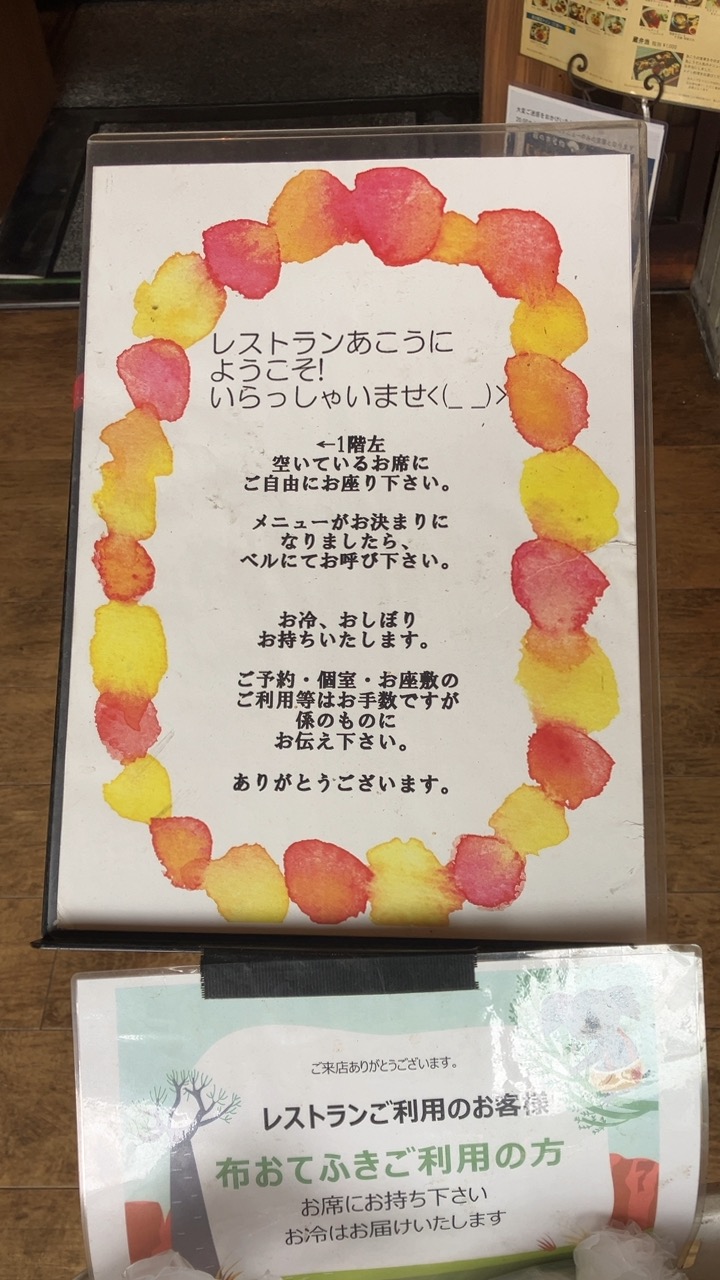 レストランあこうに
ようこそ!
いらっしゃいませ<(_ _)>
←1階左
空いているお席に
ご自由にお座り下さい。
メニューがお決まりに
なりましたら、
ベルにてお呼び下さい。
お冷、おしぼり
お持ちいたします。
ご予約・個室・お座敷の
ご利用等はお手数ですが
係のものに
お伝え下さい。
ありがとうございます。
ご来店ありがとうございます。
レストランご利用のお客様
布おてふきご利用の方
お席にお持ち下さい
お冷はお届けいたします